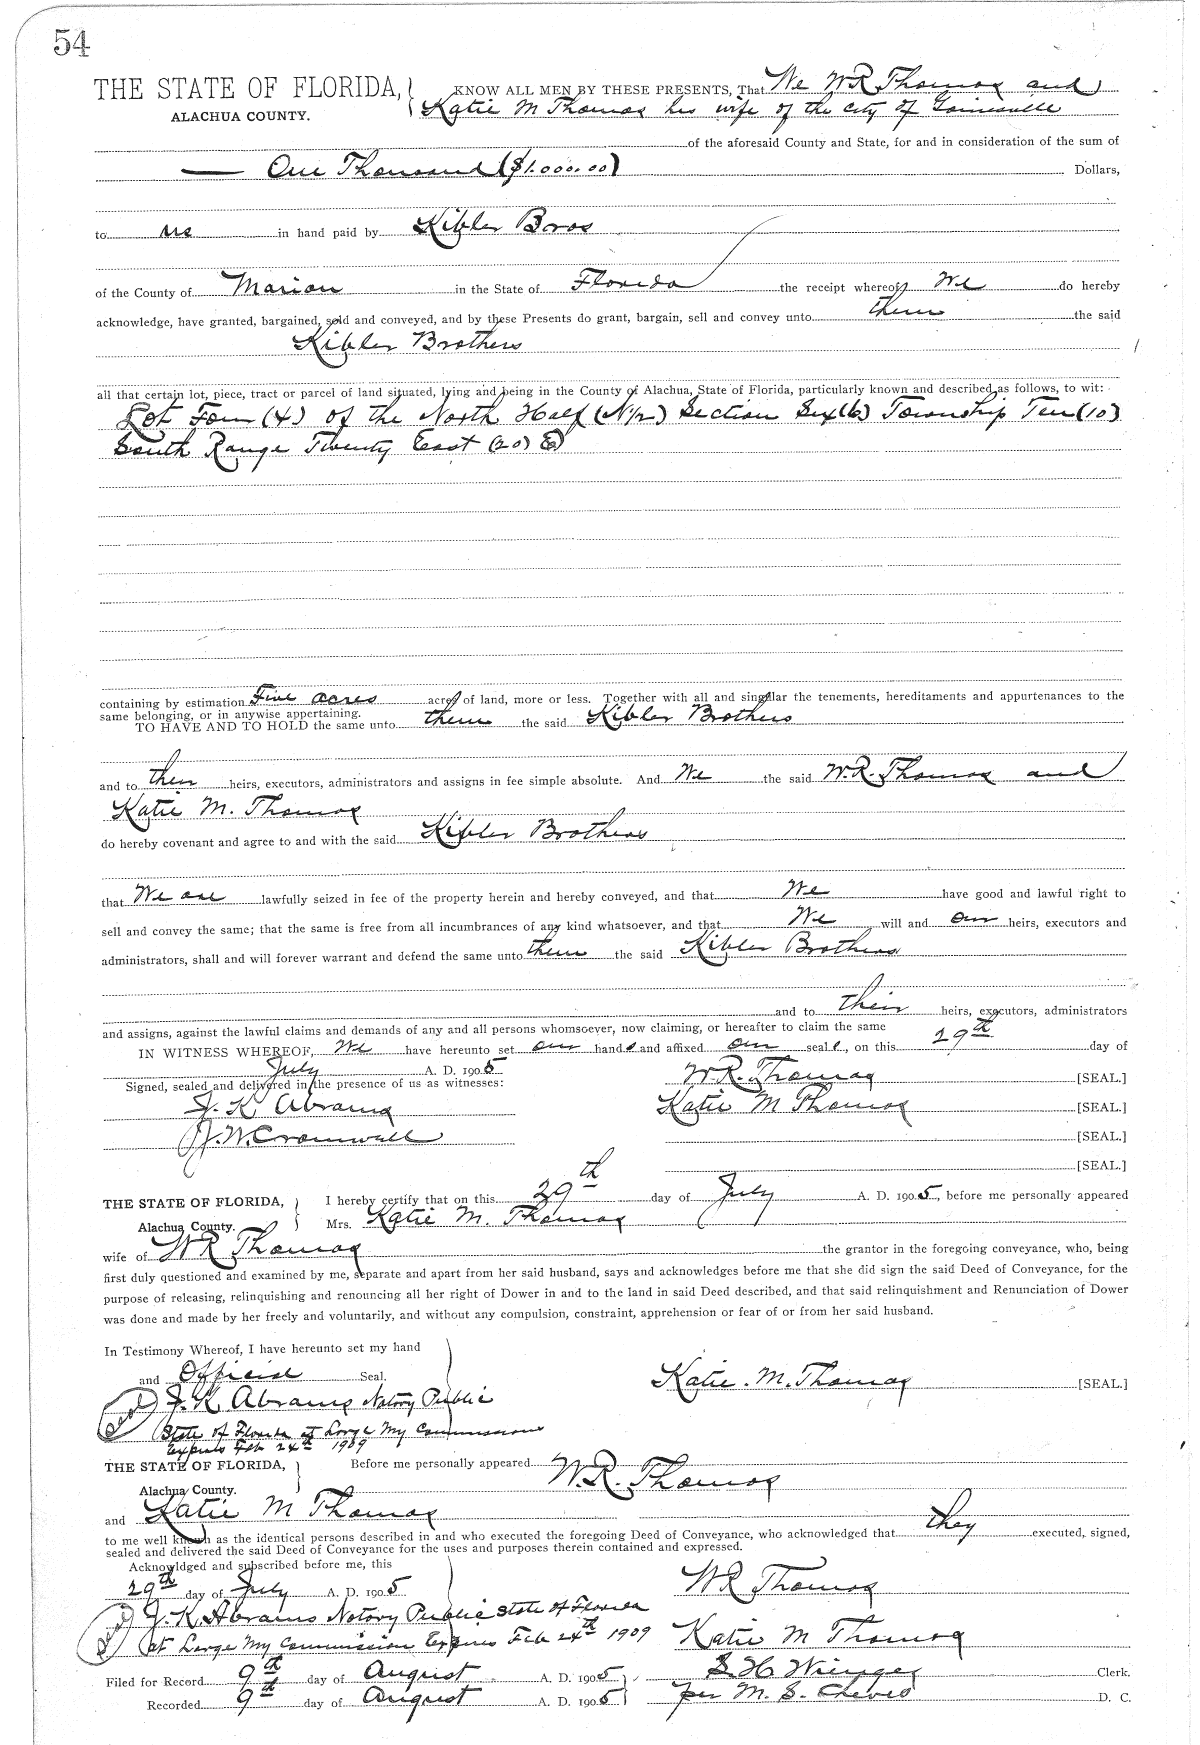 54
THE STATE OF FLORIDA, KNOW ALL MEN BY THESE PRESENTS, That We W.R. Thomas and
ALACHUA COUNTY. Katie M Thomas his wife of the city of Gainesville
of the aforesaid County and State, for and in consideration of the sum of
One Thousand ($1.000.00) Dollars,
to us in hand paid by Kibler Bros
of the County of Marion in the State of Florida the receipt whereof We do hereby
acknowledge, have granted, bargained, sold and conveyed, and by these Presents do grant, bargain, sell and convey unto them the said
Kibler Brothers
all that certain lot, piece, tract or parcel of land situated, lying and being in the County of Alachua, State of Florida, particularly known and described as follows, to wit:
Lot Four (4) of the North Half (N1/2) Section Six (6) Township Ten (10)
South Range Twenty East (20) E)
containing by estimation Five acres acres of land, more or less. Together with all and singular the tenements, hereditaments and appurtenances to the
same belonging, or in anywise appertaining.
TO HAVE AND TO HOLD the same unto them the said Kibler Brothers
and to their heirs, executors, administrators and assigns in fee simple absolute. And We the said W.R. Thomas and
Katie M. Thomas
do hereby covenant and agree to and with the said Kibler Brothers
that We are lawfully seized in fee of the property herein and hereby conveyed, and that We have good and lawful right to
sell and convey the same; that the same is free from all incumbrances of any kind whatsoever, and that We will and our heirs, executors and
administrators, shall and will forever warrant and defend the same unto them the said Kibler Brothers
and to their heirs, executors, administrators
and assigns, against the lawful claims and demands of any and all persons whomsoever, now claiming, or hereafter to claim the same
IN WITNESS WHEREOF, We have hereunto set our hands and affixed our seals, on this 29th day of
July A. D. 1905 W.R. Thomas [SEAL.]
Signed, sealed and delivered in the presence of us as witnesses:
J. K Abrams Katie M Thomas [SEAL.]
J.W. Cromwell [SEAL.]
[SEAL.]
THE STATE OF FLORIDA, I hereby certify that on this 29th day of July A. D. 1905, before me personally appeared
Alachua County. Mrs. Katie M. Thomas
wife of W R Thomas the grantor in the foregoing conveyance, who, being
first duly questioned and examined by me, separate and apart from her said husband, says and acknowledges before me that she did sign the said Deed of Conveyance, for the
purpose of releasing, relinquishing and renouncing all her right of Dower in and to the land in said Deed described, and that said relinquishment and Renunciation of Dower
was done and made by her freely and voluntarily, and without any compulsion, constraint, apprehension or fear of or from her said husband.
In Testimony Whereof, I have hereunto set my hand
and Official Seal. Katie. M. Thomas [SEAL.]
Seal J. K. Abrams Notary Public
State of Florida at Large My Commission
Expires Feb 24th 1909
THE STATE OF FLORIDA, Before me personally appeared W.R. Thomas
Alachua County.
and Katie M Thomas
to me well known as the identical persons described in and who executed the foregoing Deed of Conveyance, who acknowledged that they executed, signed,
sealed and delivered the said Deed of Conveyance for the uses and purposes therein contained and expressed.
Acknowldged and subscribed before me, this
29th day of July A. D. 1905 W R Thomas
Seal J. K. Abrams Notary Public State of Florida
at Large My Commission Expires Feb 24th 1909 Katie M Thomas
Filed for Record 9th day of August A. D. 1905 S H Wienges Clerk.
Recorded 9th day of August A. D. 1905 per M. S. Cheves D. C.